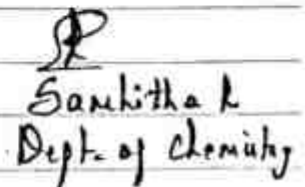 Sanhitha R
Dept. of Chemistry